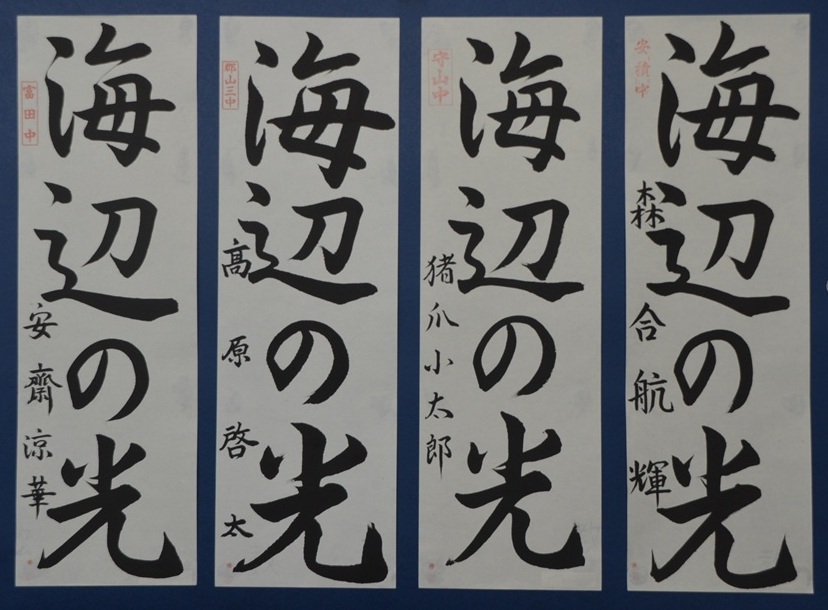 安積中
海辺の光
森合航輝
守山中
海辺の光
猪爪小太郎
郡山三中
海辺の光
高原啓太
富田中
海辺の光
安齋涼華